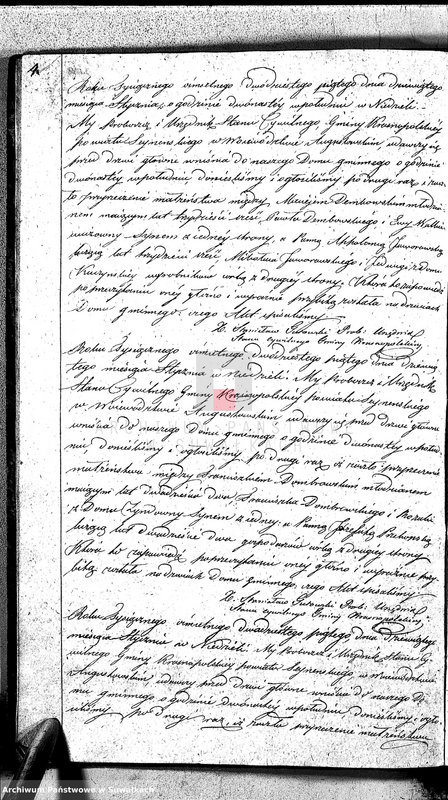 4
Roku Tysiącznego ośmsetnego dwódziestego piątego dnia dziewiątego
miesiąca Stycznia o godzinie dwónastéy wpołudnie w Niedzieli
My Proboszcz i Urzędnik Stanu Cywilnego, Gminy Krasnopolskiéy
Powiatu Seynenskiego w Woiewództwie Augustowskim udawszy się
przed drzwi główne wniścia do naszego Domu gminnego o godzinie
dwónastéy wpołudnie donieśliśmy i ogłosiliśmy po drugi raz iż zaszło
to przyrzeczenie małżeństwa między Maciejem Dembowskim młodzia
nem maiącym lat trzydzieści Pawła Dembowskiego i Ewy
Synem z iedney strony, a Panną Appolonią Jaworowską
maiącą lat trzydzieści Michała Jaworowskiego i Jadwigi z Domu
Kuczynskiey wyrobników córką z drugiéy strony. Która to zapowiedź
po przeczytaniu onéy głośno i wyraźnie przybitą została na drzwiach
Domu gminnego czego Akt spisaliśmy
X. Stanisław Prob. Urzędnik
Stanu cywilnego Gminy Krasnopolskiéy
Roku Tysiącznego ośmsetnego dwódziestego piątego dnia dziewią
tego miesiąca Stycznia w Niedzieli. My Proboszcz i Urzędnik
Stanu Cywilnego Gminy Krasnopolskiéy powiatu Seynenskiego
w Woiewództwie Augustowskim udawszy się przed drzwi główne
wniścia do naszego Domu gminnego o godzinie dwónastéy wpołu
dnie donieśliśmy i ogłosiliśmy po drugi raz iż zaszło przyrzeczenie
małżeństwa między Franciszkiem Dombrowskim młodzianem
maiącym lat dwadzieścia dwa Franciszka Dombrowskiego i Rozalii
z Domu Synem z iedney a Panną Józefatą
maiącą lat dwadzieścia dwa gospodarzów córką z drugiéy strony
Która to zapowiedź po przeczytaniu onéy głośno i wyraźnie przy
bitą została na drzwiach Domu gminnego czego Akt spisaliśmy
X. Stanisław Prob. Urzędnik
Stanu cywilnego Gminy Krasnopolskiéy
Roku Tysiącznego ośmsetnego dwódziestego piątego dnia Dziewiątego
miesiąca Stycznia w Niedzieli. My Proboszcz i Urzędnik Stanu Cy
wilnego Gminy Krasnopolskiéy powiatu Seynenskiego w Woiewództwie
Augustowskim udawszy się przed drzwi główne wniścia do naszego Do
mu gminnego o godzinie dwónastéy wpołudnie donieśliśmy i ogło
siliśmy po drugi raz iż zaszło przyrzeczenie małżeństwa
Archiwum Państwowe w Suwałkach